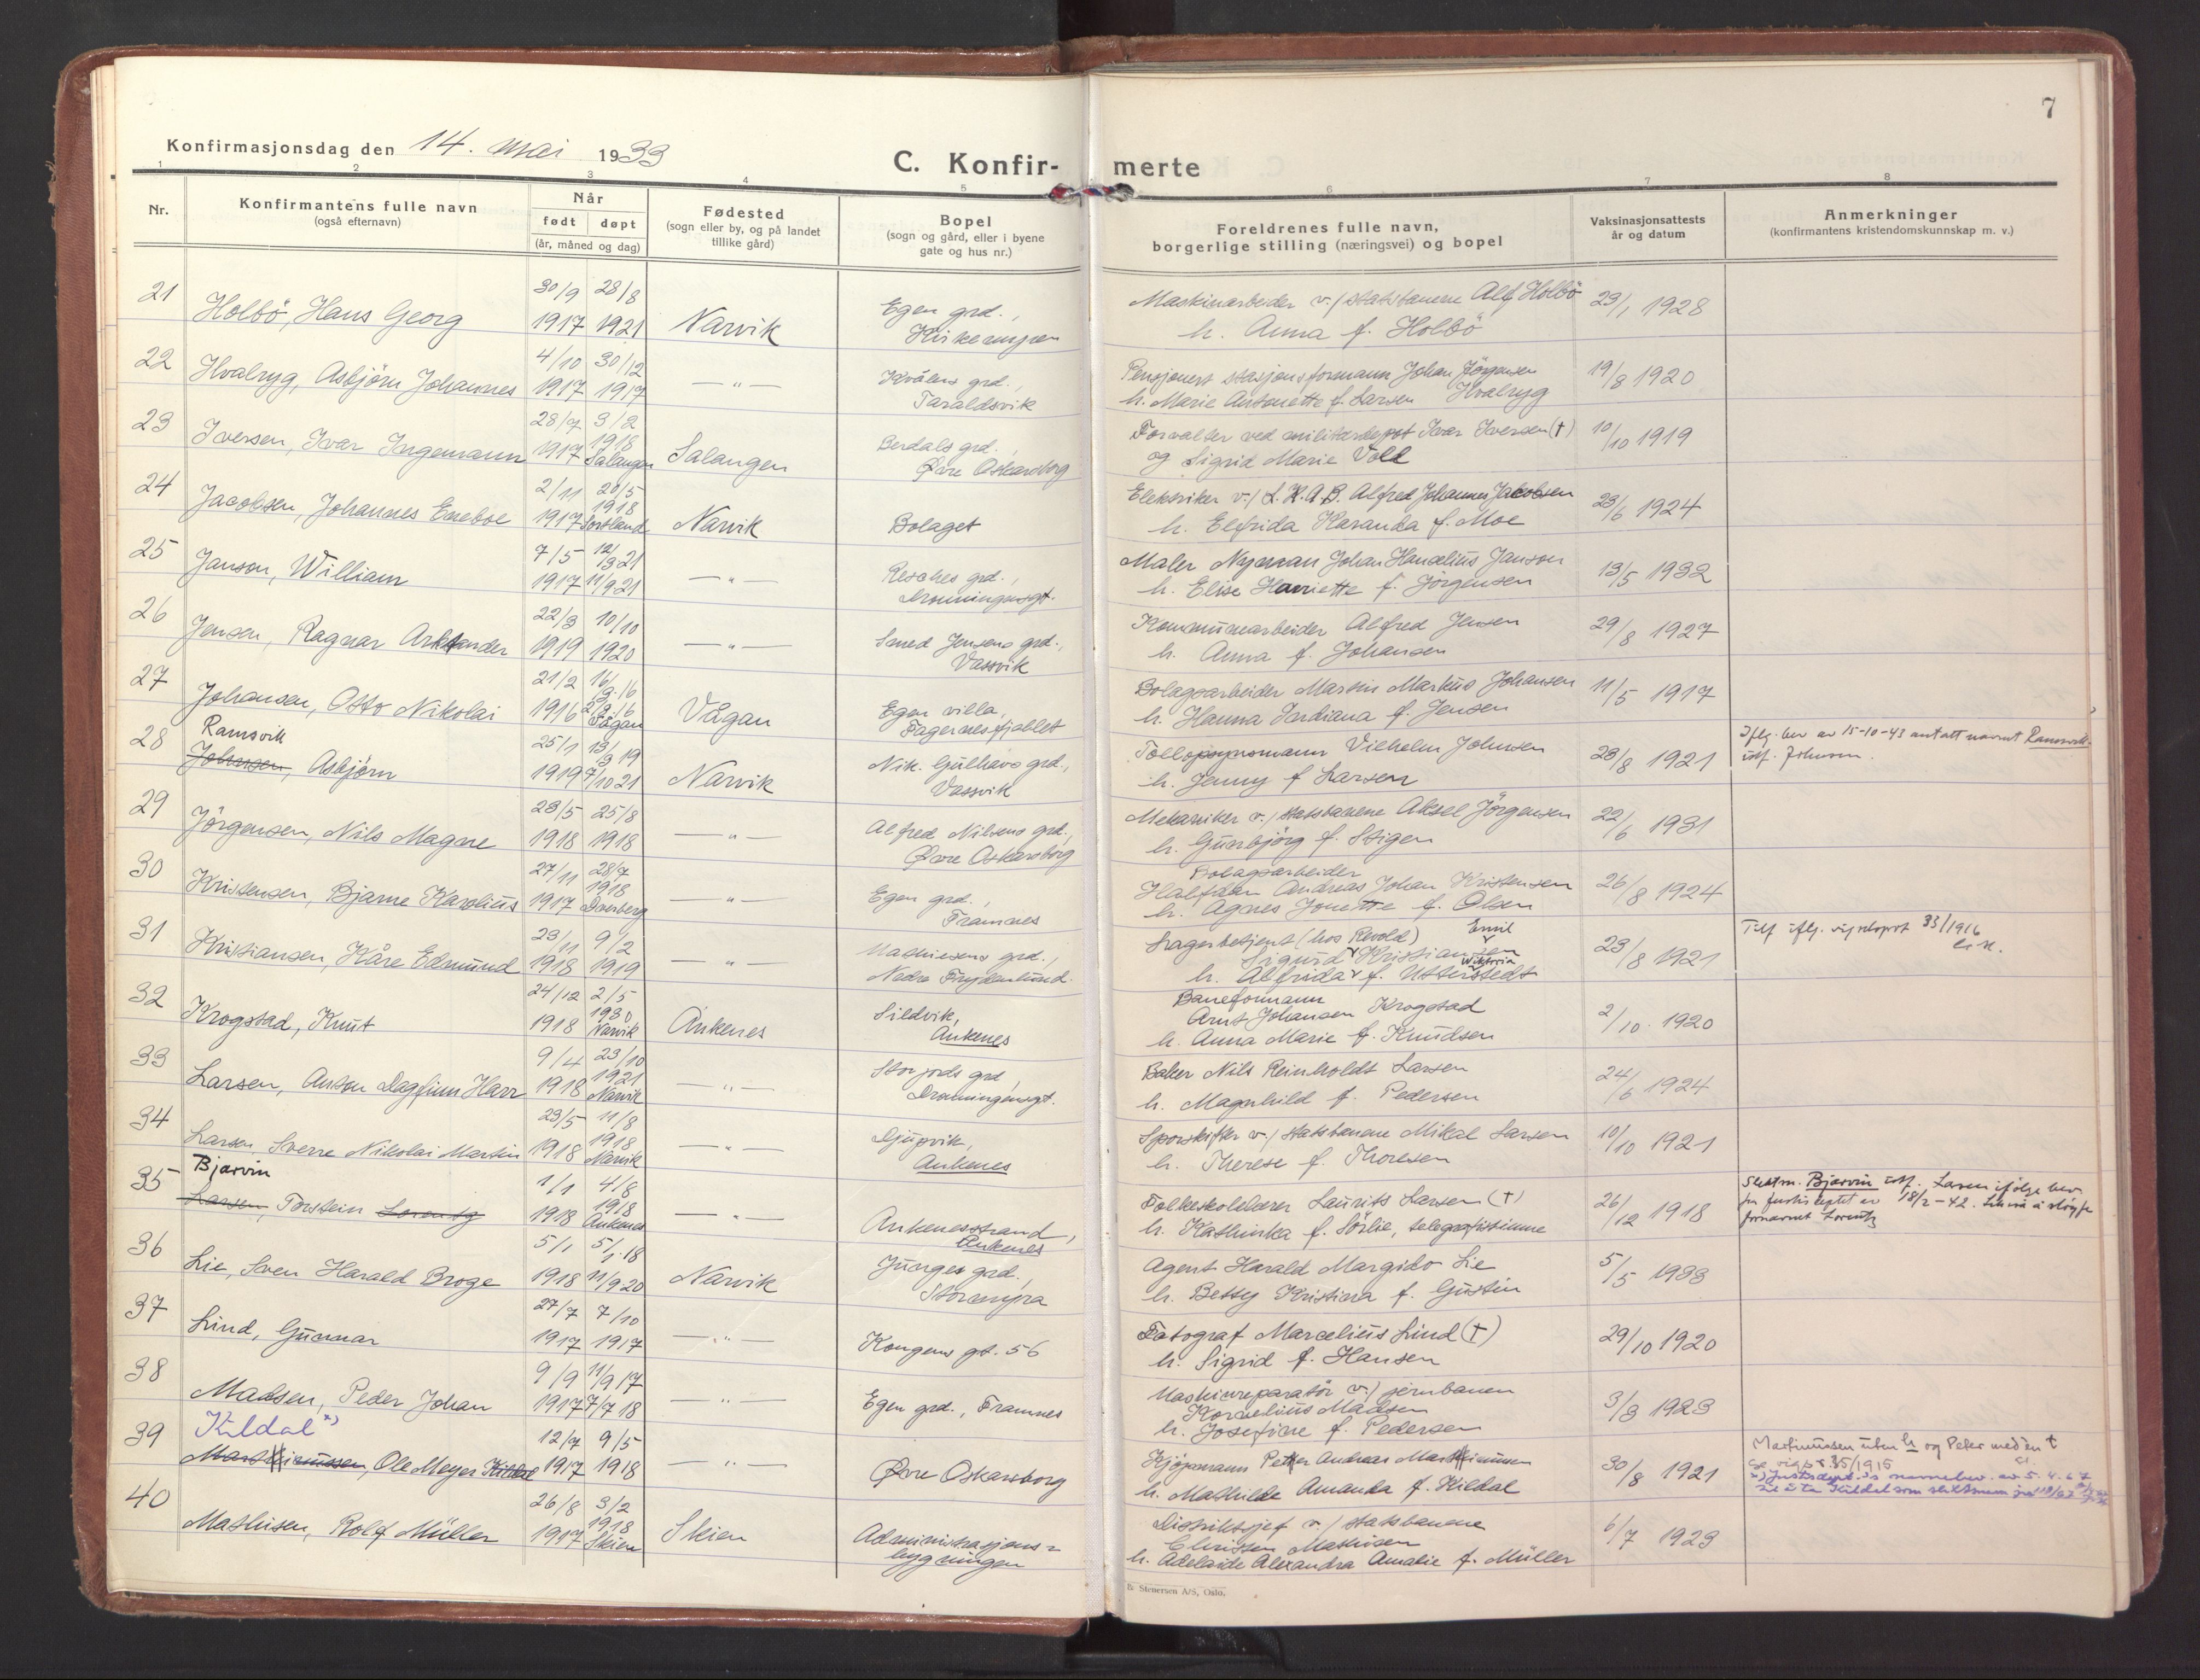 7
Konfirmasjonsdag den 14. mai 1933
C. Konfir- merte
1 2 3 4 5 6 7 8
Nr.
Konfirmantens fulle navn
(også efternavn)
Når
født døpt
(år, måned og dag)
Fødested
(sogn eller by, og på landet
tillike gård)
Bopel
(sogn og gård, eller i byene
gate og hus nr.)
Foreldrenes fulle navn,
borgerlige stilling (næringsvei) og bopel
Vaksinasjonsattests
år og datum
Anmerkninger
(konfirmantens kristendomskunnskap m. v.)
21 30/9 28/8 Egen grd., Maskinarbeider v./statsbanene Alf Holbö 23/1 1928
Holbö, Hans Georg 1917 1921 Narvik Kirkemyren h. Anna f. Holbö
22 4/10 30/12 Kvålens grd., Pensjonert stasjonsformann Johan Jörgensen 19/8 1920
Hvalryg, Asbjörn Johannes 1917 1917 —"— Taraldsvik h. Marie Antonette f. Larsen Hvalryg
23 28/7 3/2 Berdals grd., Forvalter ved militærdepot Ivar Iversen (†) 10/10 1919
Iversen, Ivar Ingemann 1917 1918 Salangen Salangen Øvre Oskarsborg og Sigrid Marie Vold
24 2/11 20/5 Elektriker v./ L.K.A.B. Alfred Johannes Jacobsen 23/6 1924
Jacobsen, Johannes Eneboe 1917 1918 Sortland Narvik Bolaget h. Elfrida Karanda f. Moe
25 7/5 12/3 21 Resches grd., Maler Nyman Johan Handelius Janson 13/5 1932
Janson, William 1917 11/9 21 —"— Dronningensgt. h. Elise Harriette f. Jörgensen
26 22/3 10/10 Smed Jensens grd., Kommunearbeider Alfred Jensen 29/8 1927
Jensen, Ragnar Arktander 1919 1920 —"— Vassvik h. Anna f. Johansen
27 21/2 16/3 16 Egen villa, Bolagsarbeider Martin Markus Johansen 11/5 1917
Johansen, Otto Nikolai 1916 Vågan Vågan Fagernesfjellet h. Hanna Jordiana f. Jensen
Ramsvik
28 25/1 13/3 19 Nik. Gulhavs grd., Tollopsynsmann Vilhelm Johnsen 23/8 1921 Iflg. bev av 15-10-43 antatt navnet Ramsvik
Johnsen, Asbjörn 1919 7/10 21 Narvik Vassvik h. Jenny f Larsen istf. Johnsen.
29 23/5 25/8 Alfred Nilsens grd., Mekaniker v./ statsbanene Aksel Jörgensen 22/6 1931
Jörgensen, Nils Magne 1918 1918 —"— Øvre Oskarsborg h. Gunbjörg f. Stigen
30 27/11 28/7 Egen grd., Bolagsarbeider
Kristensen, Bjarne Karolius 1917 1918 Dverberg —"— Framnes Halfdan Andreas Johan Kristensen 26/8 1924
h. Agnes Jonette f. Olsen
31 23/11 9/2 Mathiesens grd., Lagerbetjent (hos Revold) Emil 23/8 1921
Kristiansen, Kåre Edmund 1918 1919 —"— Nedre Frydenlund. Sigurd Kristiansen
h. Alfrida Viktoria f. Utterstedt
32 24/12 2/5 Sildvik, Baneformann
Krogstad, Knut 1918 1930 Narvik Ankenes Ankenes Arnt Johansen Krogstad 2/10 1920
h. Anna Marie f. Knudsen
33 9/4 23/10 Storjords grd, Baker Nils Reinholdt Larsen 24/6 1924
Larsen, Anton Dagfinn Harr 1918 1921 Narvik —"— Dronningensgt. h. Magnhild f. Pedersen
34 23/5 11/8 Djupvik, Sporskifter v./ statsbanene Mikal Larsen 10/10 1921
Larsen Sverre Nikolai Martin 1918 1918 Narvik —"— Ankenes h. Therese f. Thoresen
Bjarvin
35 1/1 4/8 Ankenesstrand, Folkeskolelærer Laurits Larsen (†) 26/12 1918 Slektsn. Bjarvin istf. Larsen ifölge bev.
Larsen, Torstein Lorentz 1918 1918 Ankenes —"— Ankenes h. Kathinka f. Sörlie, telegrafistinne fornavnet Lorentz
36 5/1 5/1 18 Junges grd., Agent Harald Margido Lie 5/5 1933
Lie, Sven Harald Broge 1918 11/9 20 Narvik Stormyra h. Betsy Kristiana f. Gustin
37 27/7 7/10 Fotograf Marcelius Lind (†) 29/10 1920
Lind, Gunnar 1917 1917 —"— Kongens gt. 56 h. Sigrid f. Hansen
38 9/9 11/9 17 Maskinreparatör v./ jernbanen
Madsen, Peder Johan 1917 7/7 18 —"— Egen grd., Framnes Kornelius Madsen 3/3 1923
h. Josefine f. Pedersen
Kildal x)
39 12/7 9/5 Kjöpmann Petter Andreas Marthinussen 30/8 1921 Martinussen uten h og Peter med en t
Marthinussen, Ole Meyer Kildal 1917 1918 —"— Øvre Oskarsborg h. Mathilde Amanda f. Kildal
40 26/8 3/2 Administrasjons- Distriktsjef v./ statsbanene
Mathisen, Rolf Müller 1917 1918 Skien Skien bygningen Mathisen 6/7 1923
h. Adelaide Alexandra Amalie f. Müller
Stenersen A/S, Oslo.